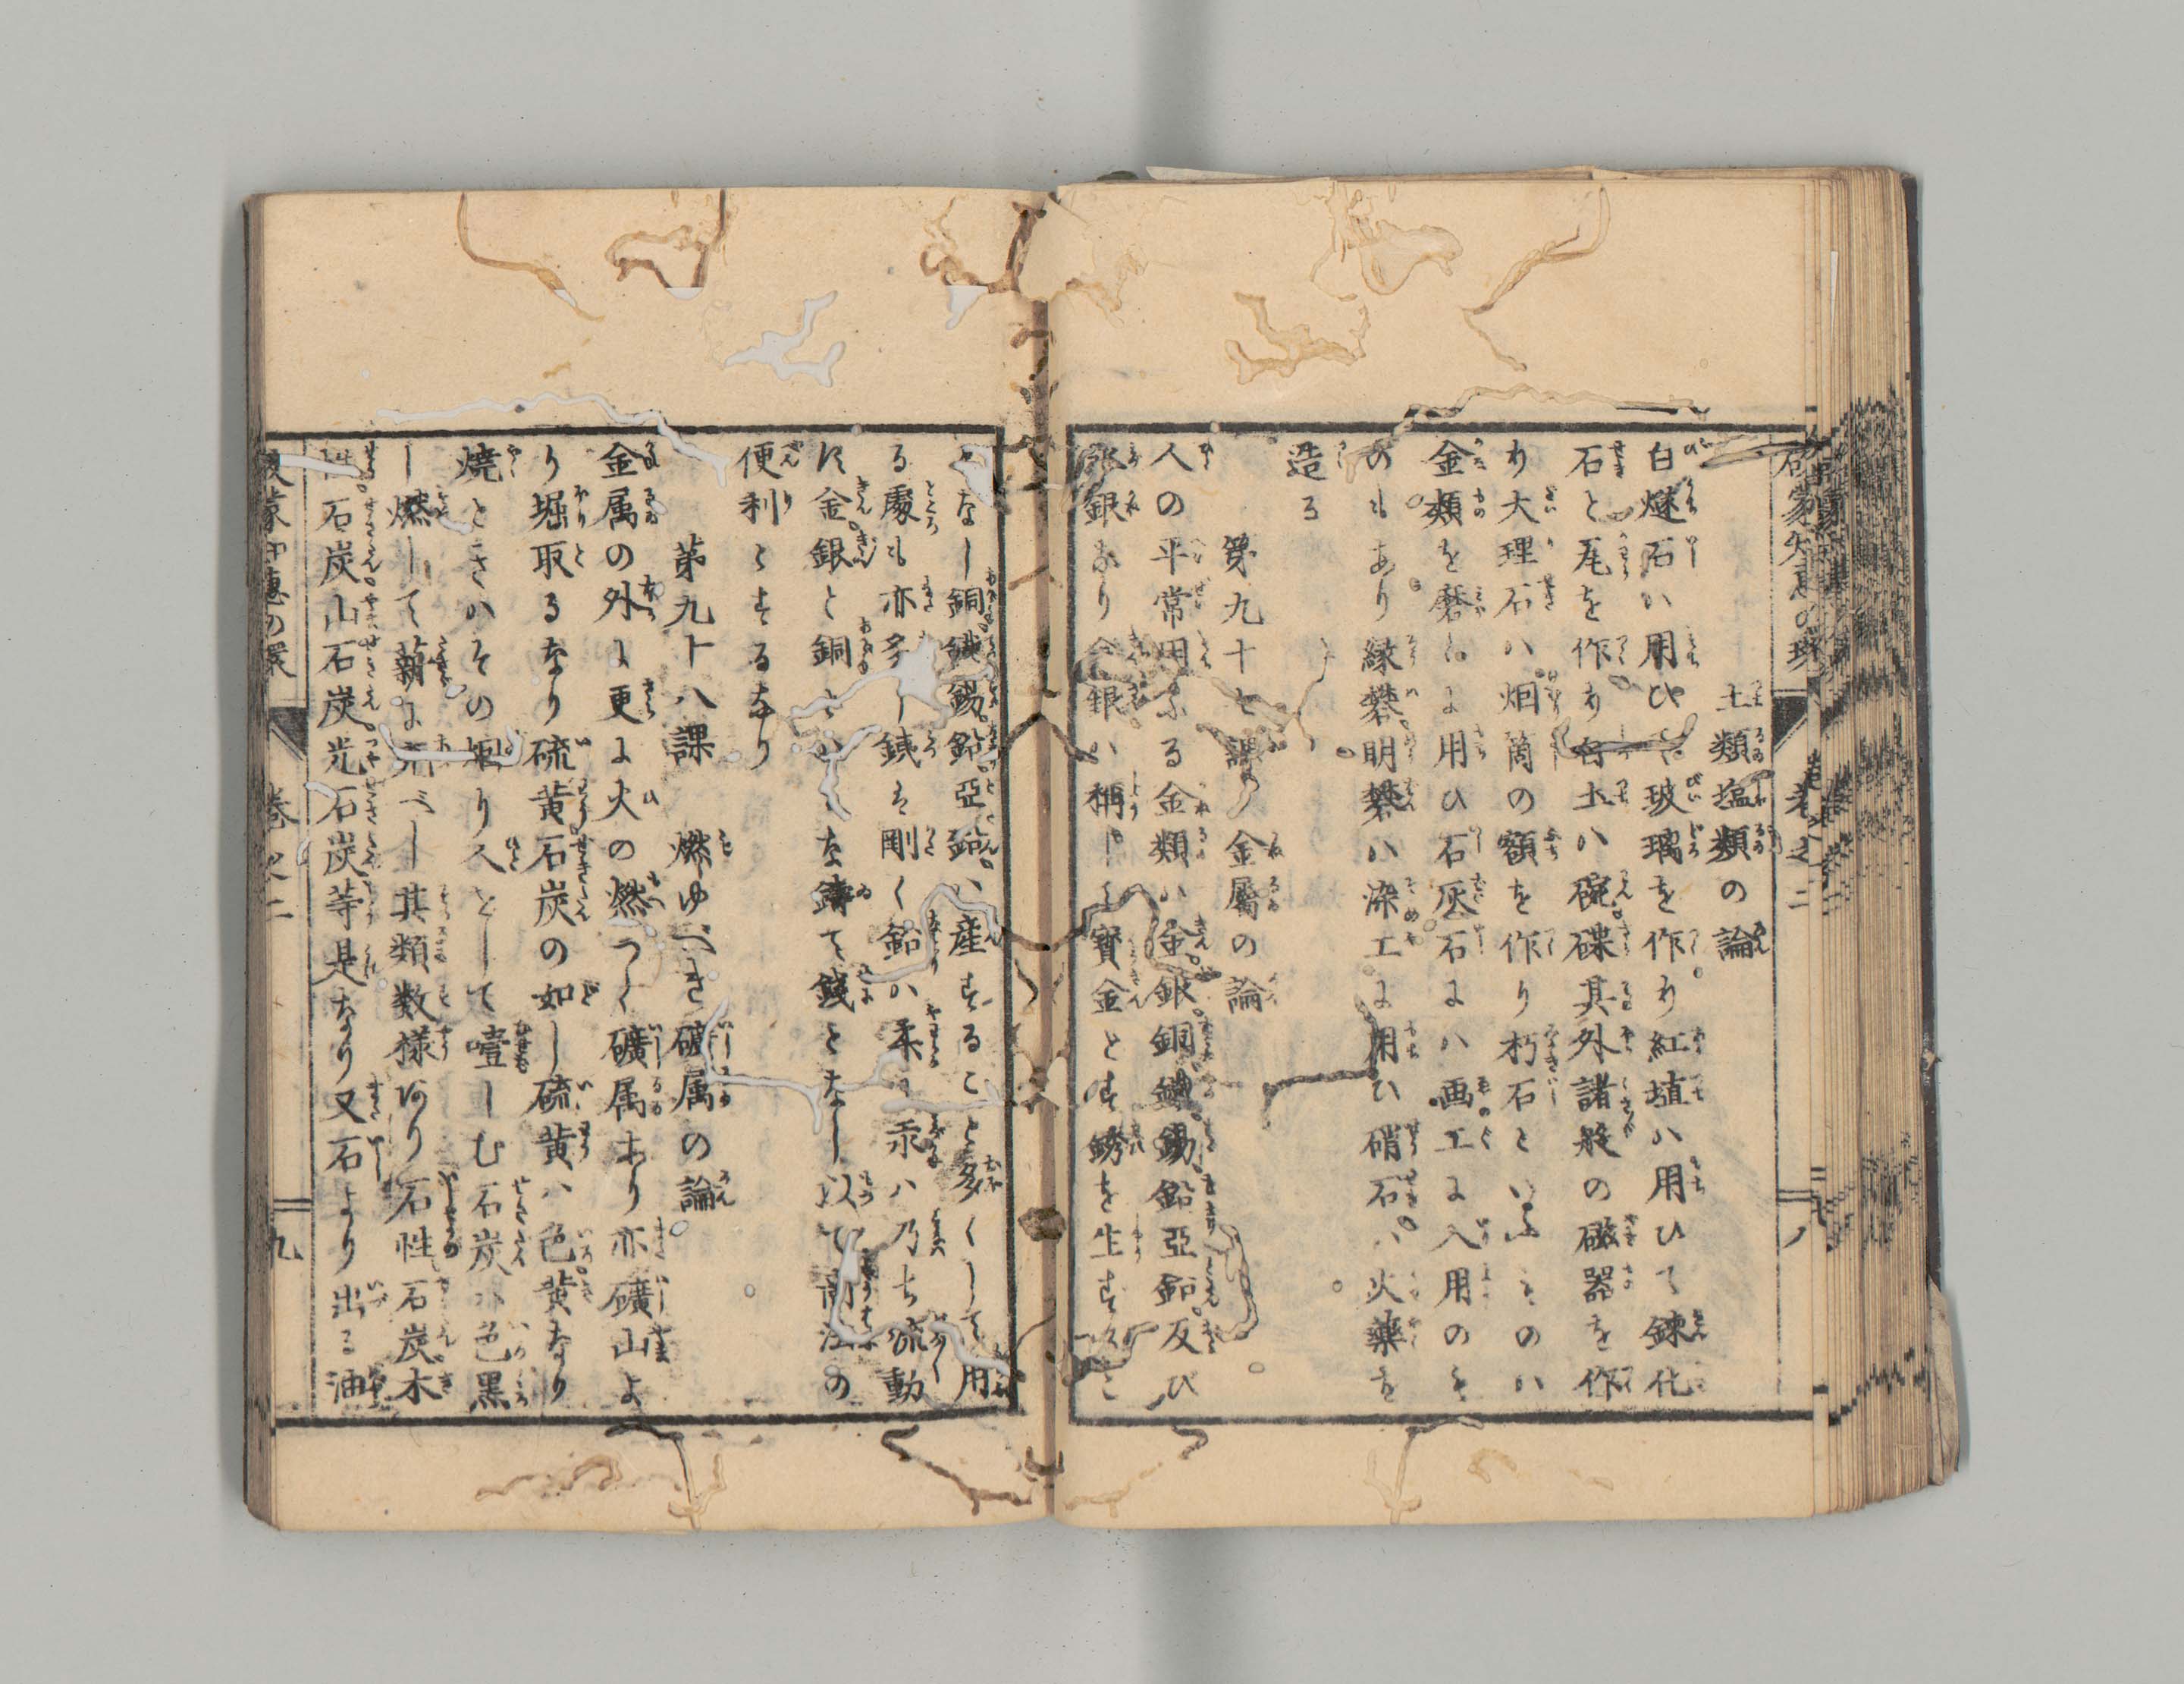 土類塩類の論
白燧石ハ用ひて玻璃を作り紅埴ハ用ひて錬化
石と尾を作り白土ハ碗碟其外諸般の磁器を作
り大理石ハ烟筒の額を作り朽石といふものハ
金類を磨くに用ひ石灰石にハ画工に入用のも
のもあり緑礬明礬ハ染工に用ひ硝石ハ火薬を
造る
第九十七課 金屬の論
人の平常用ふる金類ハ金銀銅鐵錫鉛亞鉛及び
銀なり金銀ハ稱して寶金とす銹を生すること
なし銅鐵錫鉛亞鉛ハ産すること多くして用
る處も亦多し鐵ハ剛く鉛ハ柔に汞ハ乃ち流動
す金銀と銅とハミな鋳て錢となし以て商法の
便利とするなり
第九十八課 燃ゆべき礦属の論
金属の外に更に火の燃つく礦属あり亦礦山よ
り堀取るなり硫黄石炭の如し硫黄ハ色黄なり
焼ときハその烟り人をして噎しむ石炭ハ色黒
し燃して薪に充べし其類数様あり石性石炭木
性石炭山石炭光石炭等是なり又石より出る油
啓蒙知恵の環
巻之二
八
啓蒙知恵の環
巻之二
九